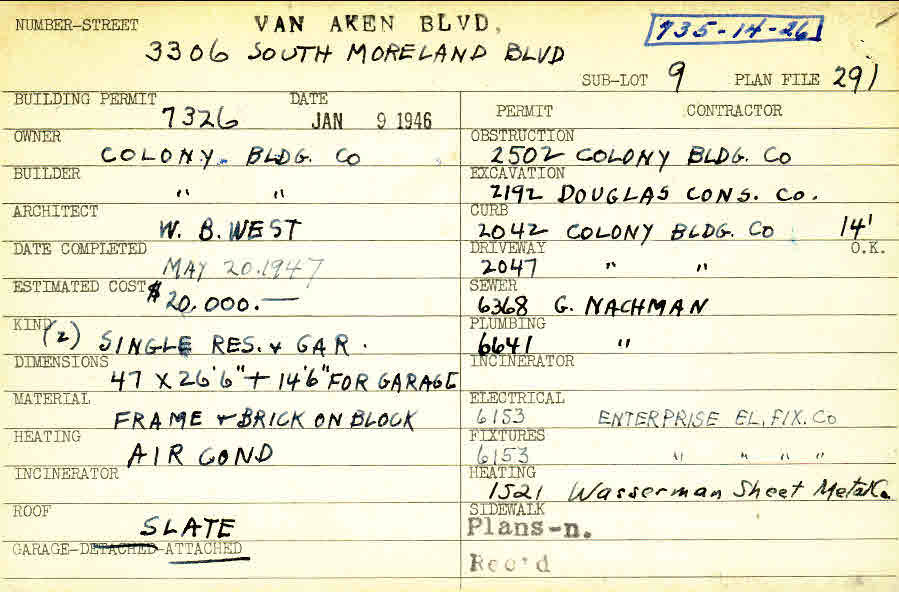 NUMBER-STREET VAN AKEN BLVD, 735-14-26
3306 SOUTH MORELAND BLVD
SUB-LOT 9 PLAN FILE 291
BUILDING PERMIT DATE
7326 JAN 9 1946
OWNER
COLONY BLDG. CO
BUILDER
" "
ARCHITECT
W. B. WEST
DATE COMPLETED
MAY 20.1947
ESTIMATED COST $20,000.—
KIND
(2) SINGLE RES. & GAR.
DIMENSIONS
47 X 26'6" + 14'6" FOR GARAGE
MATERIAL
FRAME & BRICK ON BLOCK
HEATING
AIR COND
INCINERATOR
ROOF
SLATE
GARAGE-DETACHED-ATTACHED
PERMIT CONTRACTOR
OBSTRUCTION
2502 COLONY BLDG. CO
EXCAVATION
2192 DOUGLAS CONS. CO.
CURB
2042 COLONY BLDG. CO 14'
DRIVEWAY O.K.
2047 " "
SEWER
6368 G. NACHMAN
PLUMBING
6641 "
INCINERATOR
ELECTRICAL
6153 ENTERPRISE EL. FIX. CO
FIXTURES
6153 " " " "
HEATING
1521 Wasserman Sheet Metal Co.
SIDEWALK
Plans-n.
Rec'd